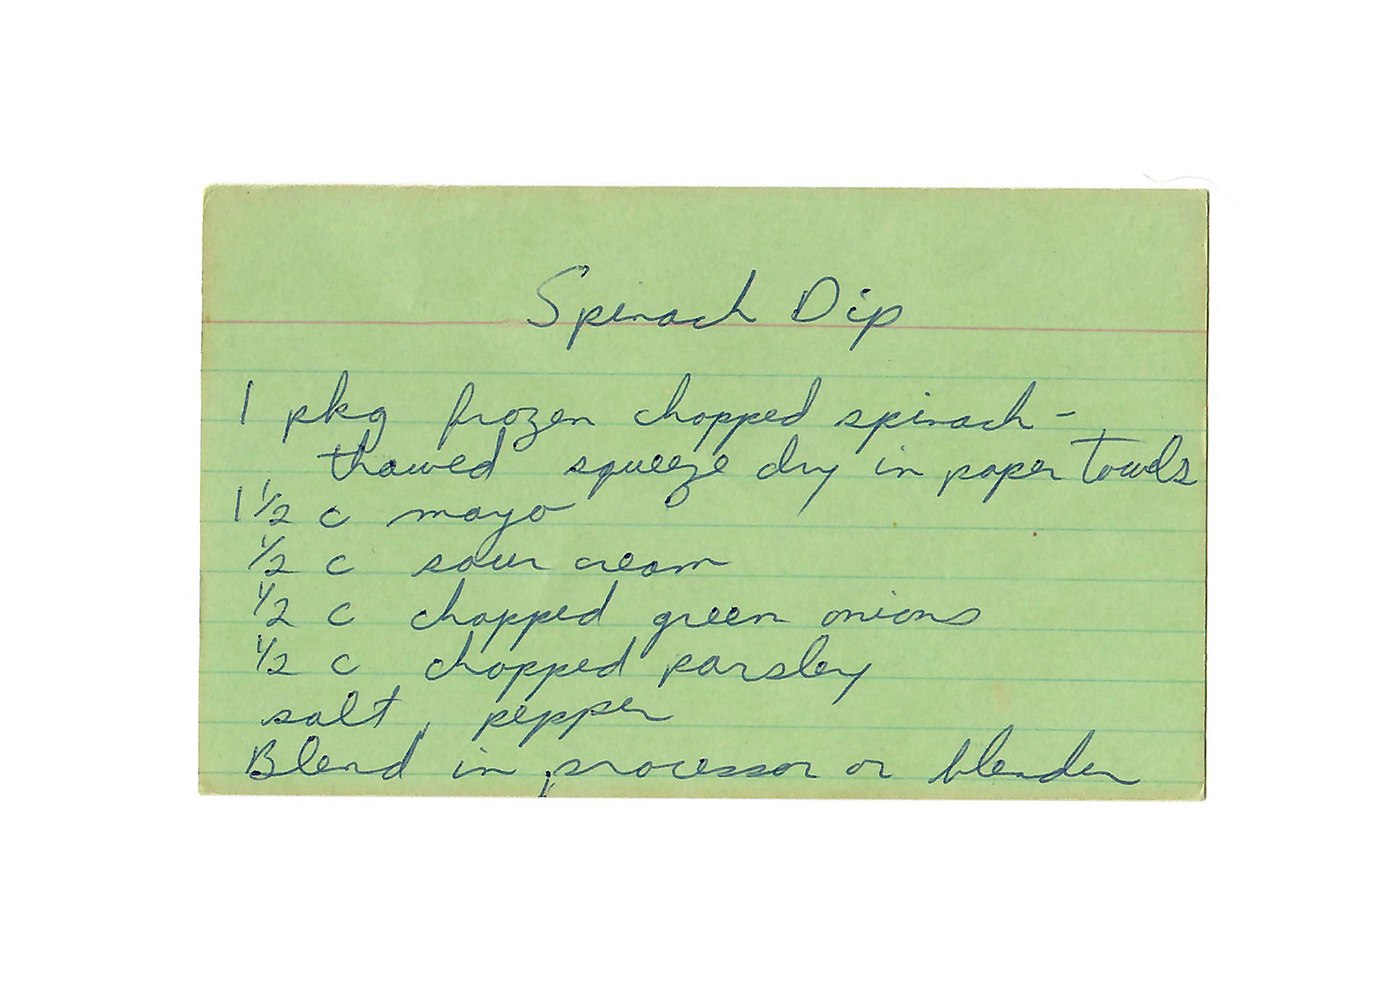 Spinach Dip
1 pkg frozen chopped spinach -
thawed squeeze dry in paper towels
1 1/2 c mayo
1/2 c sour cream
1/2 c chopped green onions
1/2 c chopped parsley
salt, pepper
Blend in processor or blender